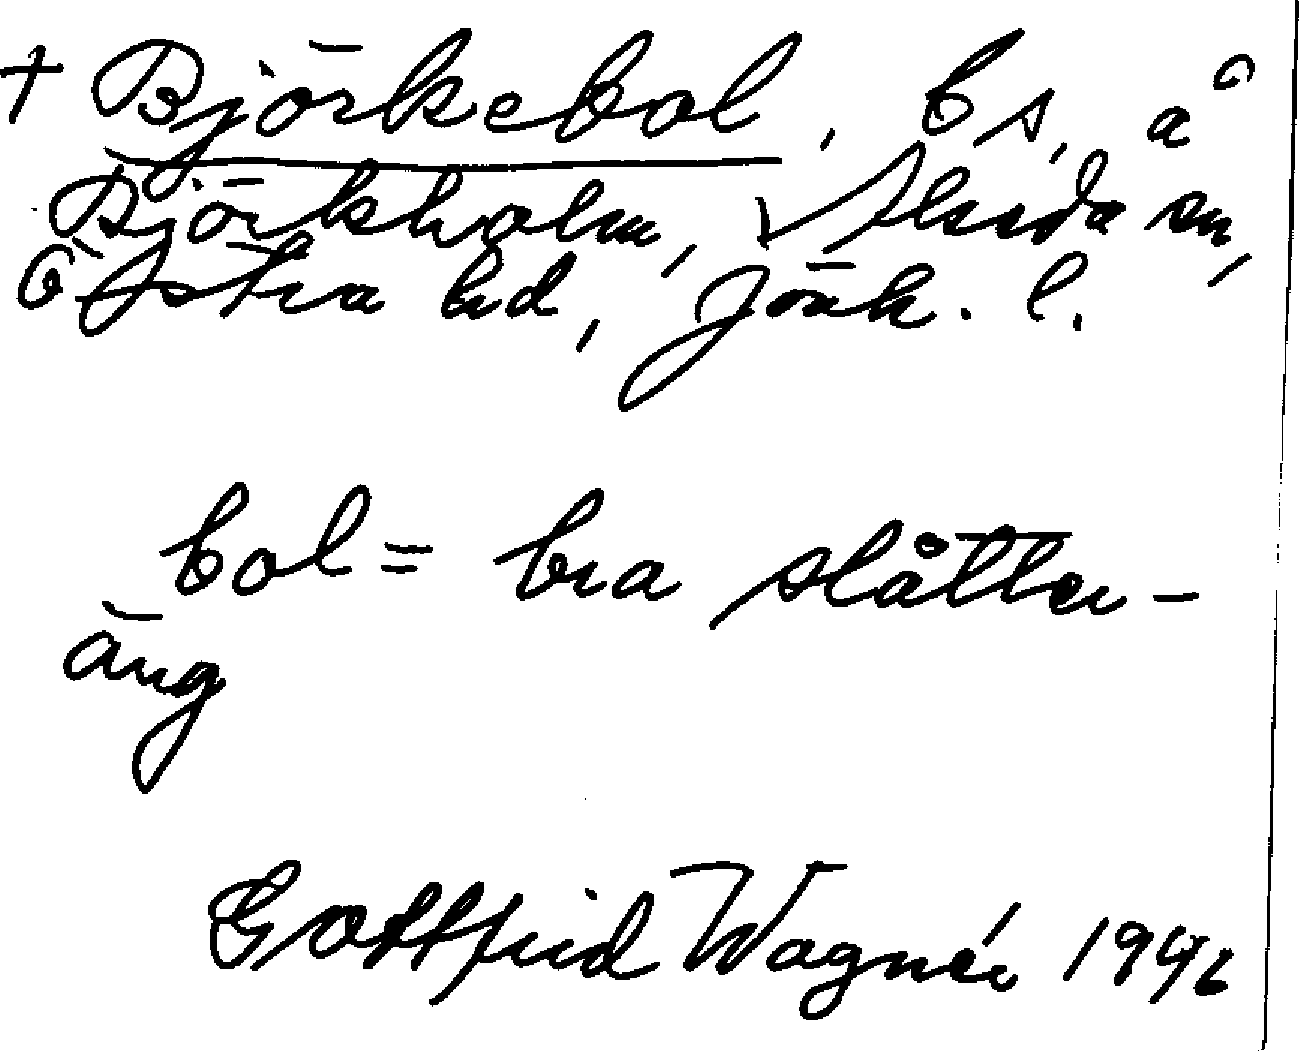 † Björkebol, bs, å
Björkholm, Skeda sn,
Östra hd, Jönk. l.
bol = bra slåtter-
äng
Gottfrid Wagnér 1946